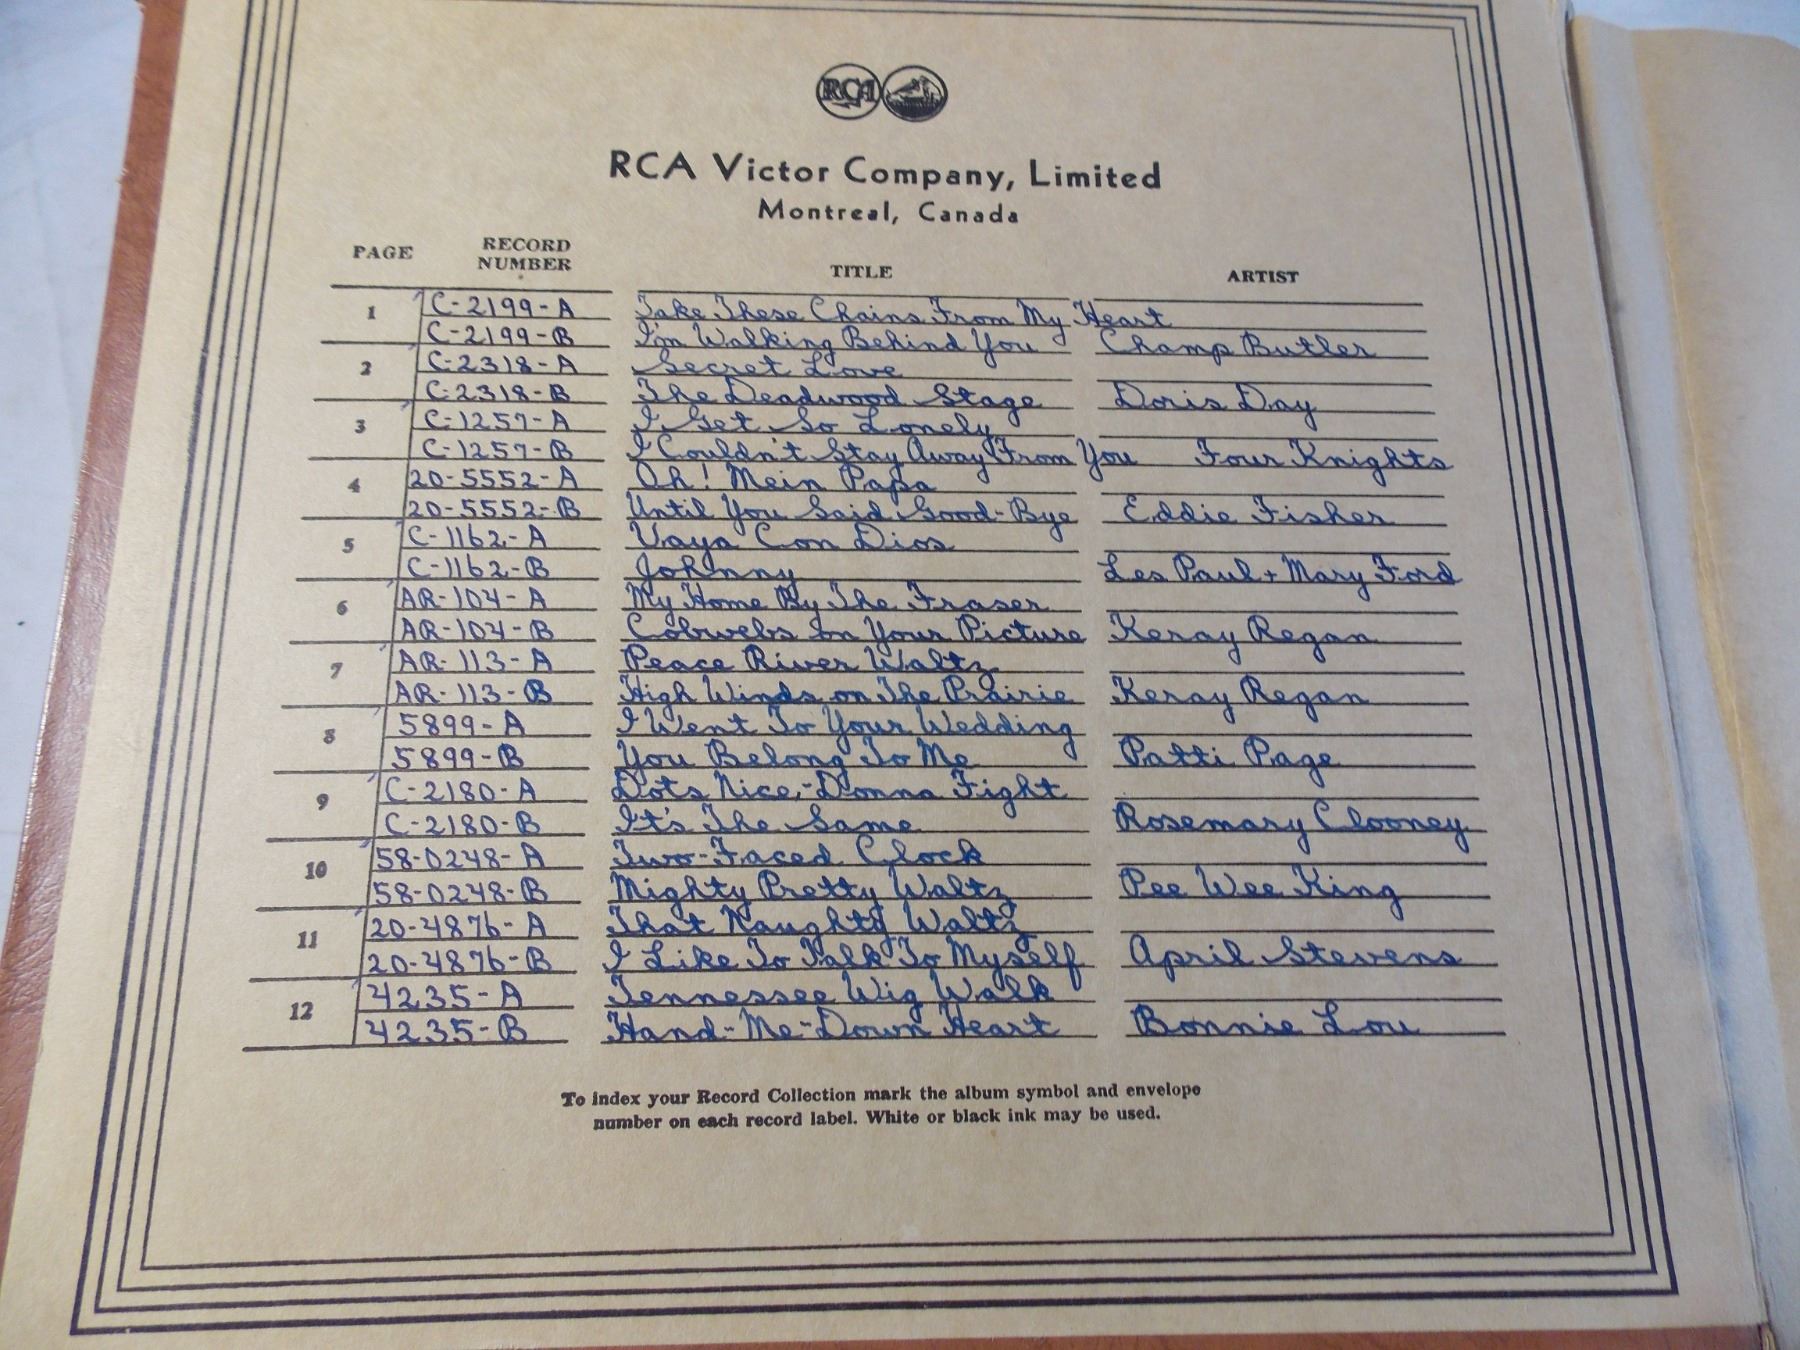 RCA
RCA Victor Company, Limited
Montreal, Canada
PAGE RECORD NUMBER TITLE ARTIST
1 C-2199-A Take These Chains From My Heart
C-2199-B I'm Walking Behind You Champ Butler
2 C-2318-A Secret Love
C-2318-B The Deadwood Stage Doris Day
3 C-1257-A I Get So Lonely
C-1257-B I Couldn't Stay Away From You Four Knights
4 20-5552-A Oh! Mein Papa
20-5552-B Until You Said Good-Bye Eddie Fisher
5 C-1162-A Vaya Con Dios
C-1162-B Johnny Les Paul + Mary Ford
6 AR-104-A My Home By The Fraser
AR-104-B Cobwebs on Your Picture Keray Regan
7 AR-113-A Peace River Waltz
AR-113-B High Winds on The Prairie Keray Regan
8 5899-A I Went To Your Wedding
5899-B You Belong To Me Patti Page
9 C-2180-A Dots Nice-Donna Fight
C-2180-B It's The Same Rosemary Clooney
10 58-0248-A Two-Faced Clock
58-0248-B Mighty Pretty Waltz Pee Wee King
11 20-4876-A That Naughty Waltz
20-4876-B I Like To Talk To Myself April Stevens
12 4235-A Tennessee Wig Walk
4235-B Hand-Me-Down Heart Bonnie Lou
To index your Record Collection mark the album symbol and envelope
number on each record label. White or black ink may be used.